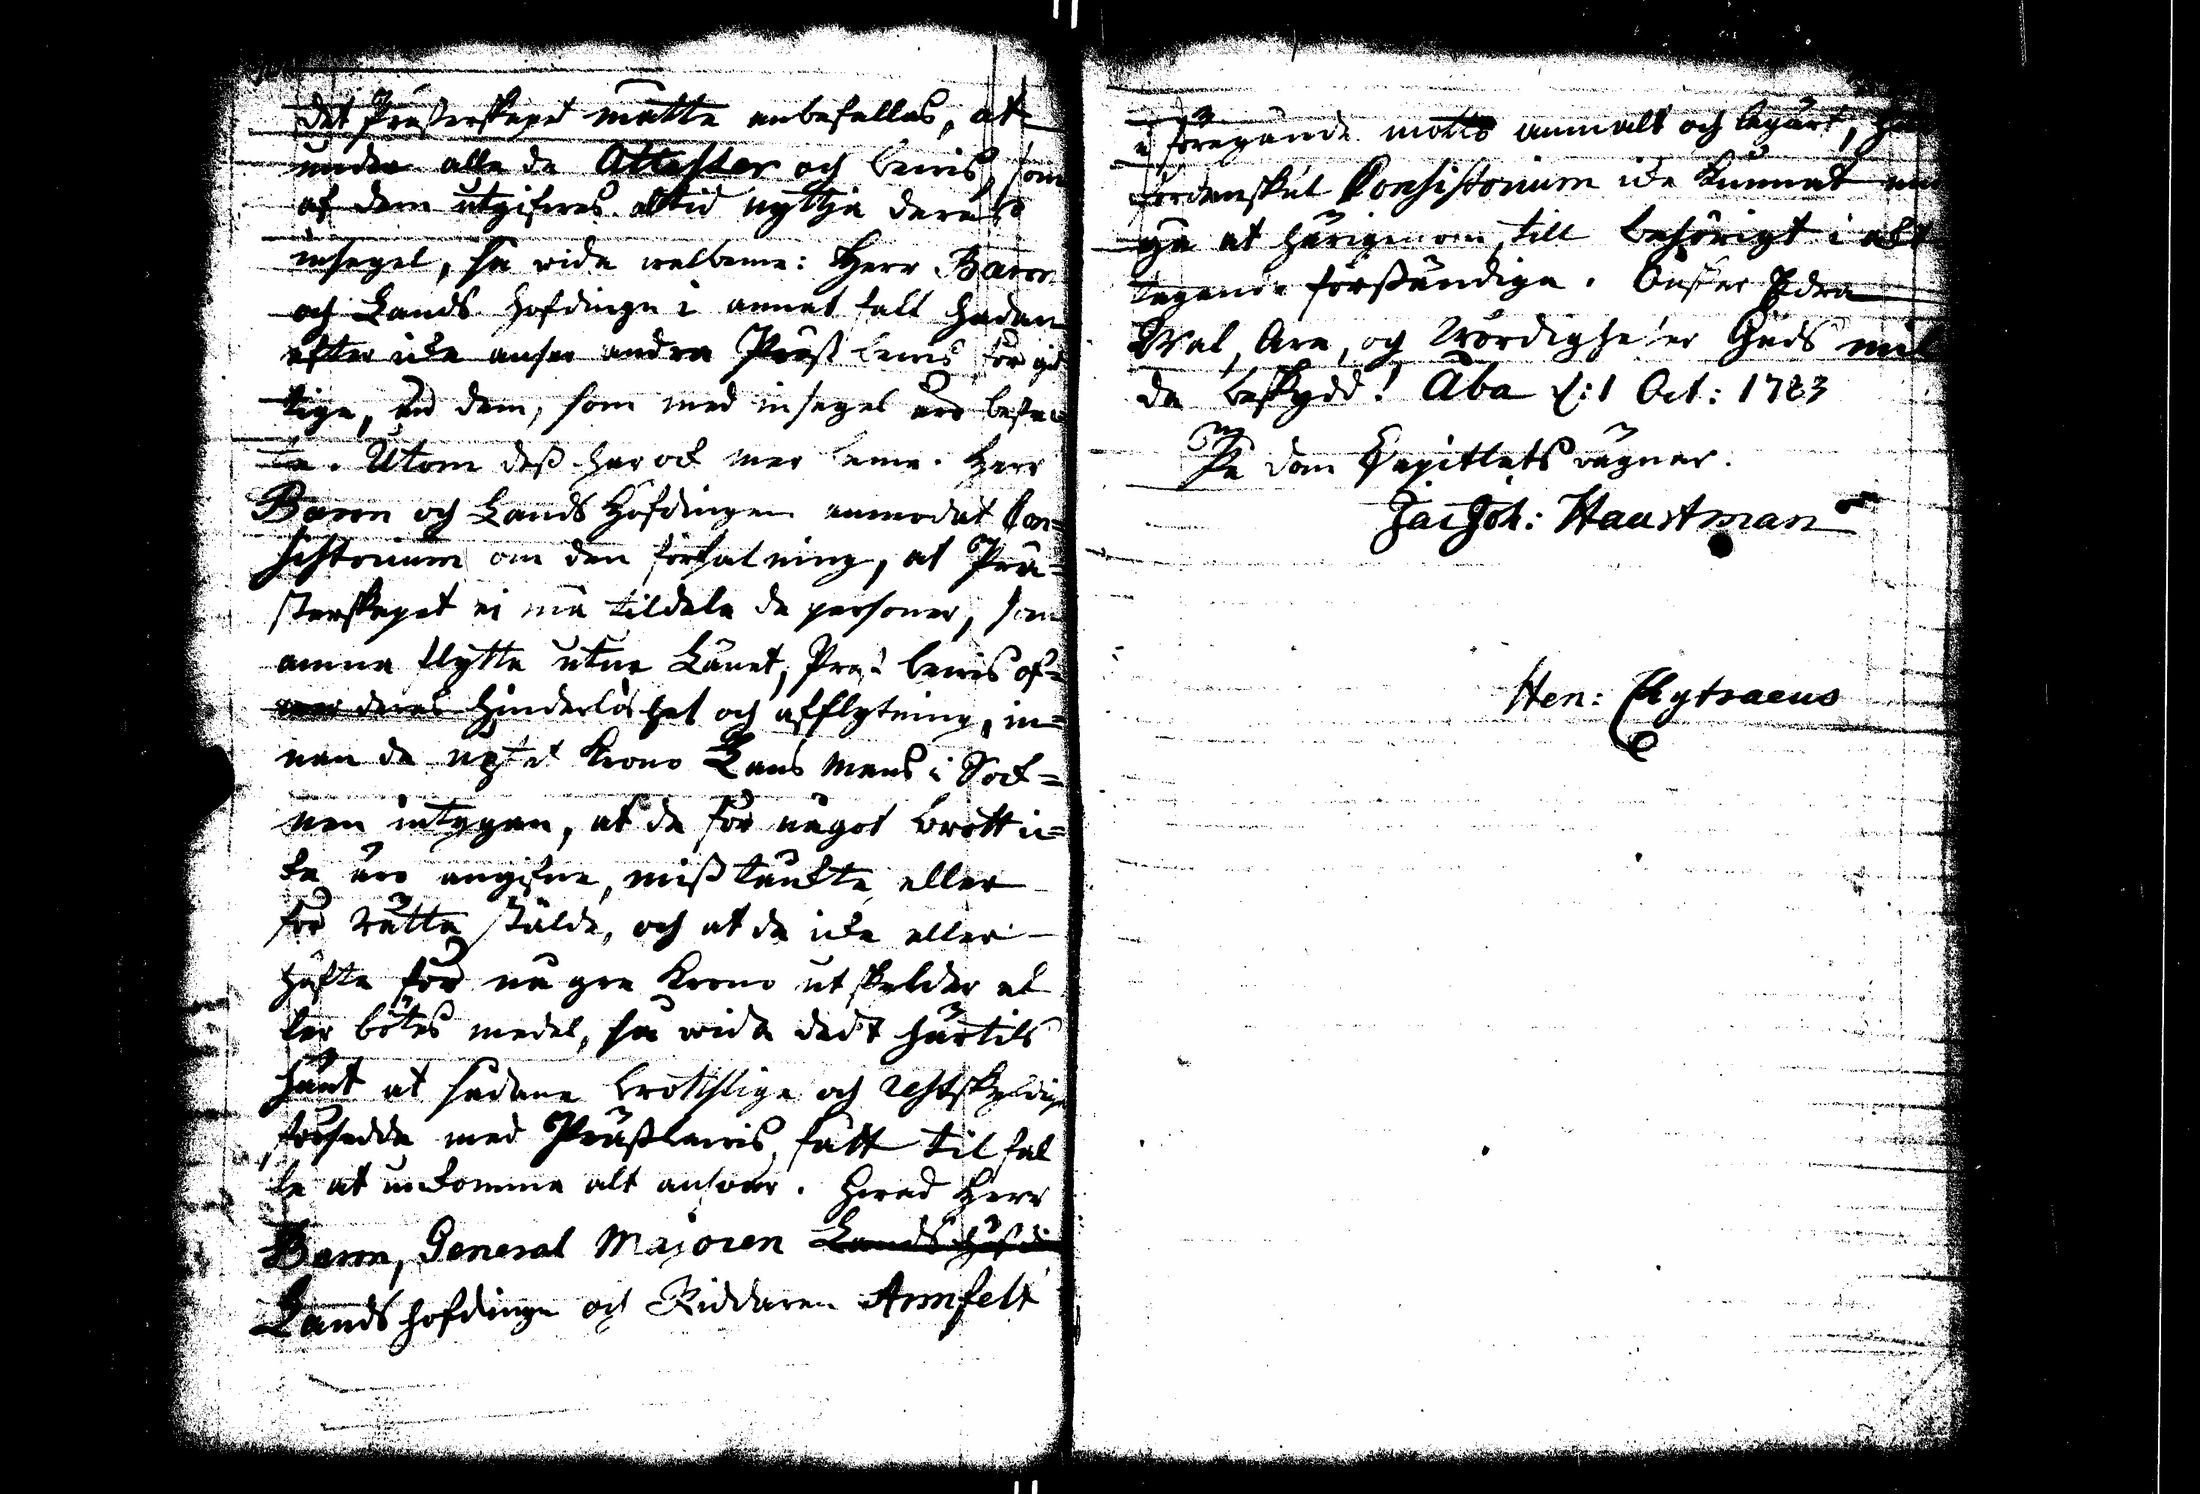 det Prästerskapet måtte anbefallas, at
under alla de Attester och bewis, som
af dem utgifwas altid nyttja deras
insegel, så wida welbem: Herr Baron
och Lands Höfdinge i annat fall hädan
efter icke anser andra Präst bewis för gil
tige, än dem, som med insegel äro befä
ta. Utom dess har ock mer bem: Herr
Baron och Lands Höfdingen anmodat Con=
sistorium om den författning, at Prä=
sterskapet ei må tildela de personer, som
ämna flytta utur Länet, Präst bewis öf=
wer deras Hinderlöshet och afflytning, in=
nan de med Krono Läns Mans i Sock=
nen intygan, at de för något brott ic=
ke äro angifne, misstänkte eller
för Rätta stälde, och at de icke eller
häfta för några Krono utskylder el
ler bötes medel, så wida det härtils
händt at sådane brottslige och restskyldige
försedde med Prästbewis, fått tilfäl
le at undkomma alt answar. Hwad Herr
Baron, General Majoren Lands Höfdi
Landshöfdinge och Riddaren Armfelt
i föregående måtto anmält och begärt, har
fördenskul Consistorium icke kunnat und
gå at härigenom, till behörigt i akt
tagande förständiga. Önskar Edra
Wäl, Ära, och Wördigheter Guds mil
da beskydd! Åbo d: 1 Oct: 1783
På dom Capittlets wägnar.
Jac Joh: Haartman
Hen: Chytraeus